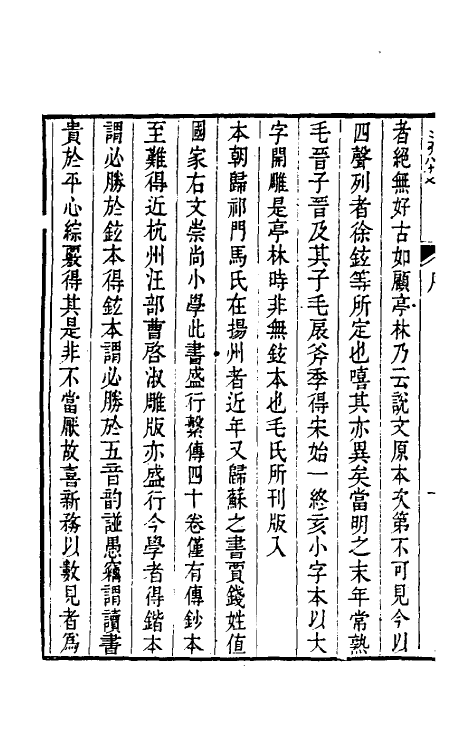 者絕無好古如顧亭林乃云說文原本次第不可見今以
四聲列者徐鉉等所定也嘻其亦異矣當明之末年常熟
毛晉子晉及其子毛扆斧季得宋始一終亥小字本以大
字開雕是亭林時非無鉉本也毛氏所刊版入
本朝歸祁門馬氏在揚州者近年又歸蘇之書賈錢姓值
國家右文崇尚小學此書盛行繫傳四十卷僅有傳鈔本
至難得近杭州汪部曹啓淑雕版亦盛行今學者得鍇本
謂必勝於鉉本得鉉本謂必勝於五音韵譜愚竊謂讀書
貴於平心綜覈得其是非不當厭故喜新務以數見者爲